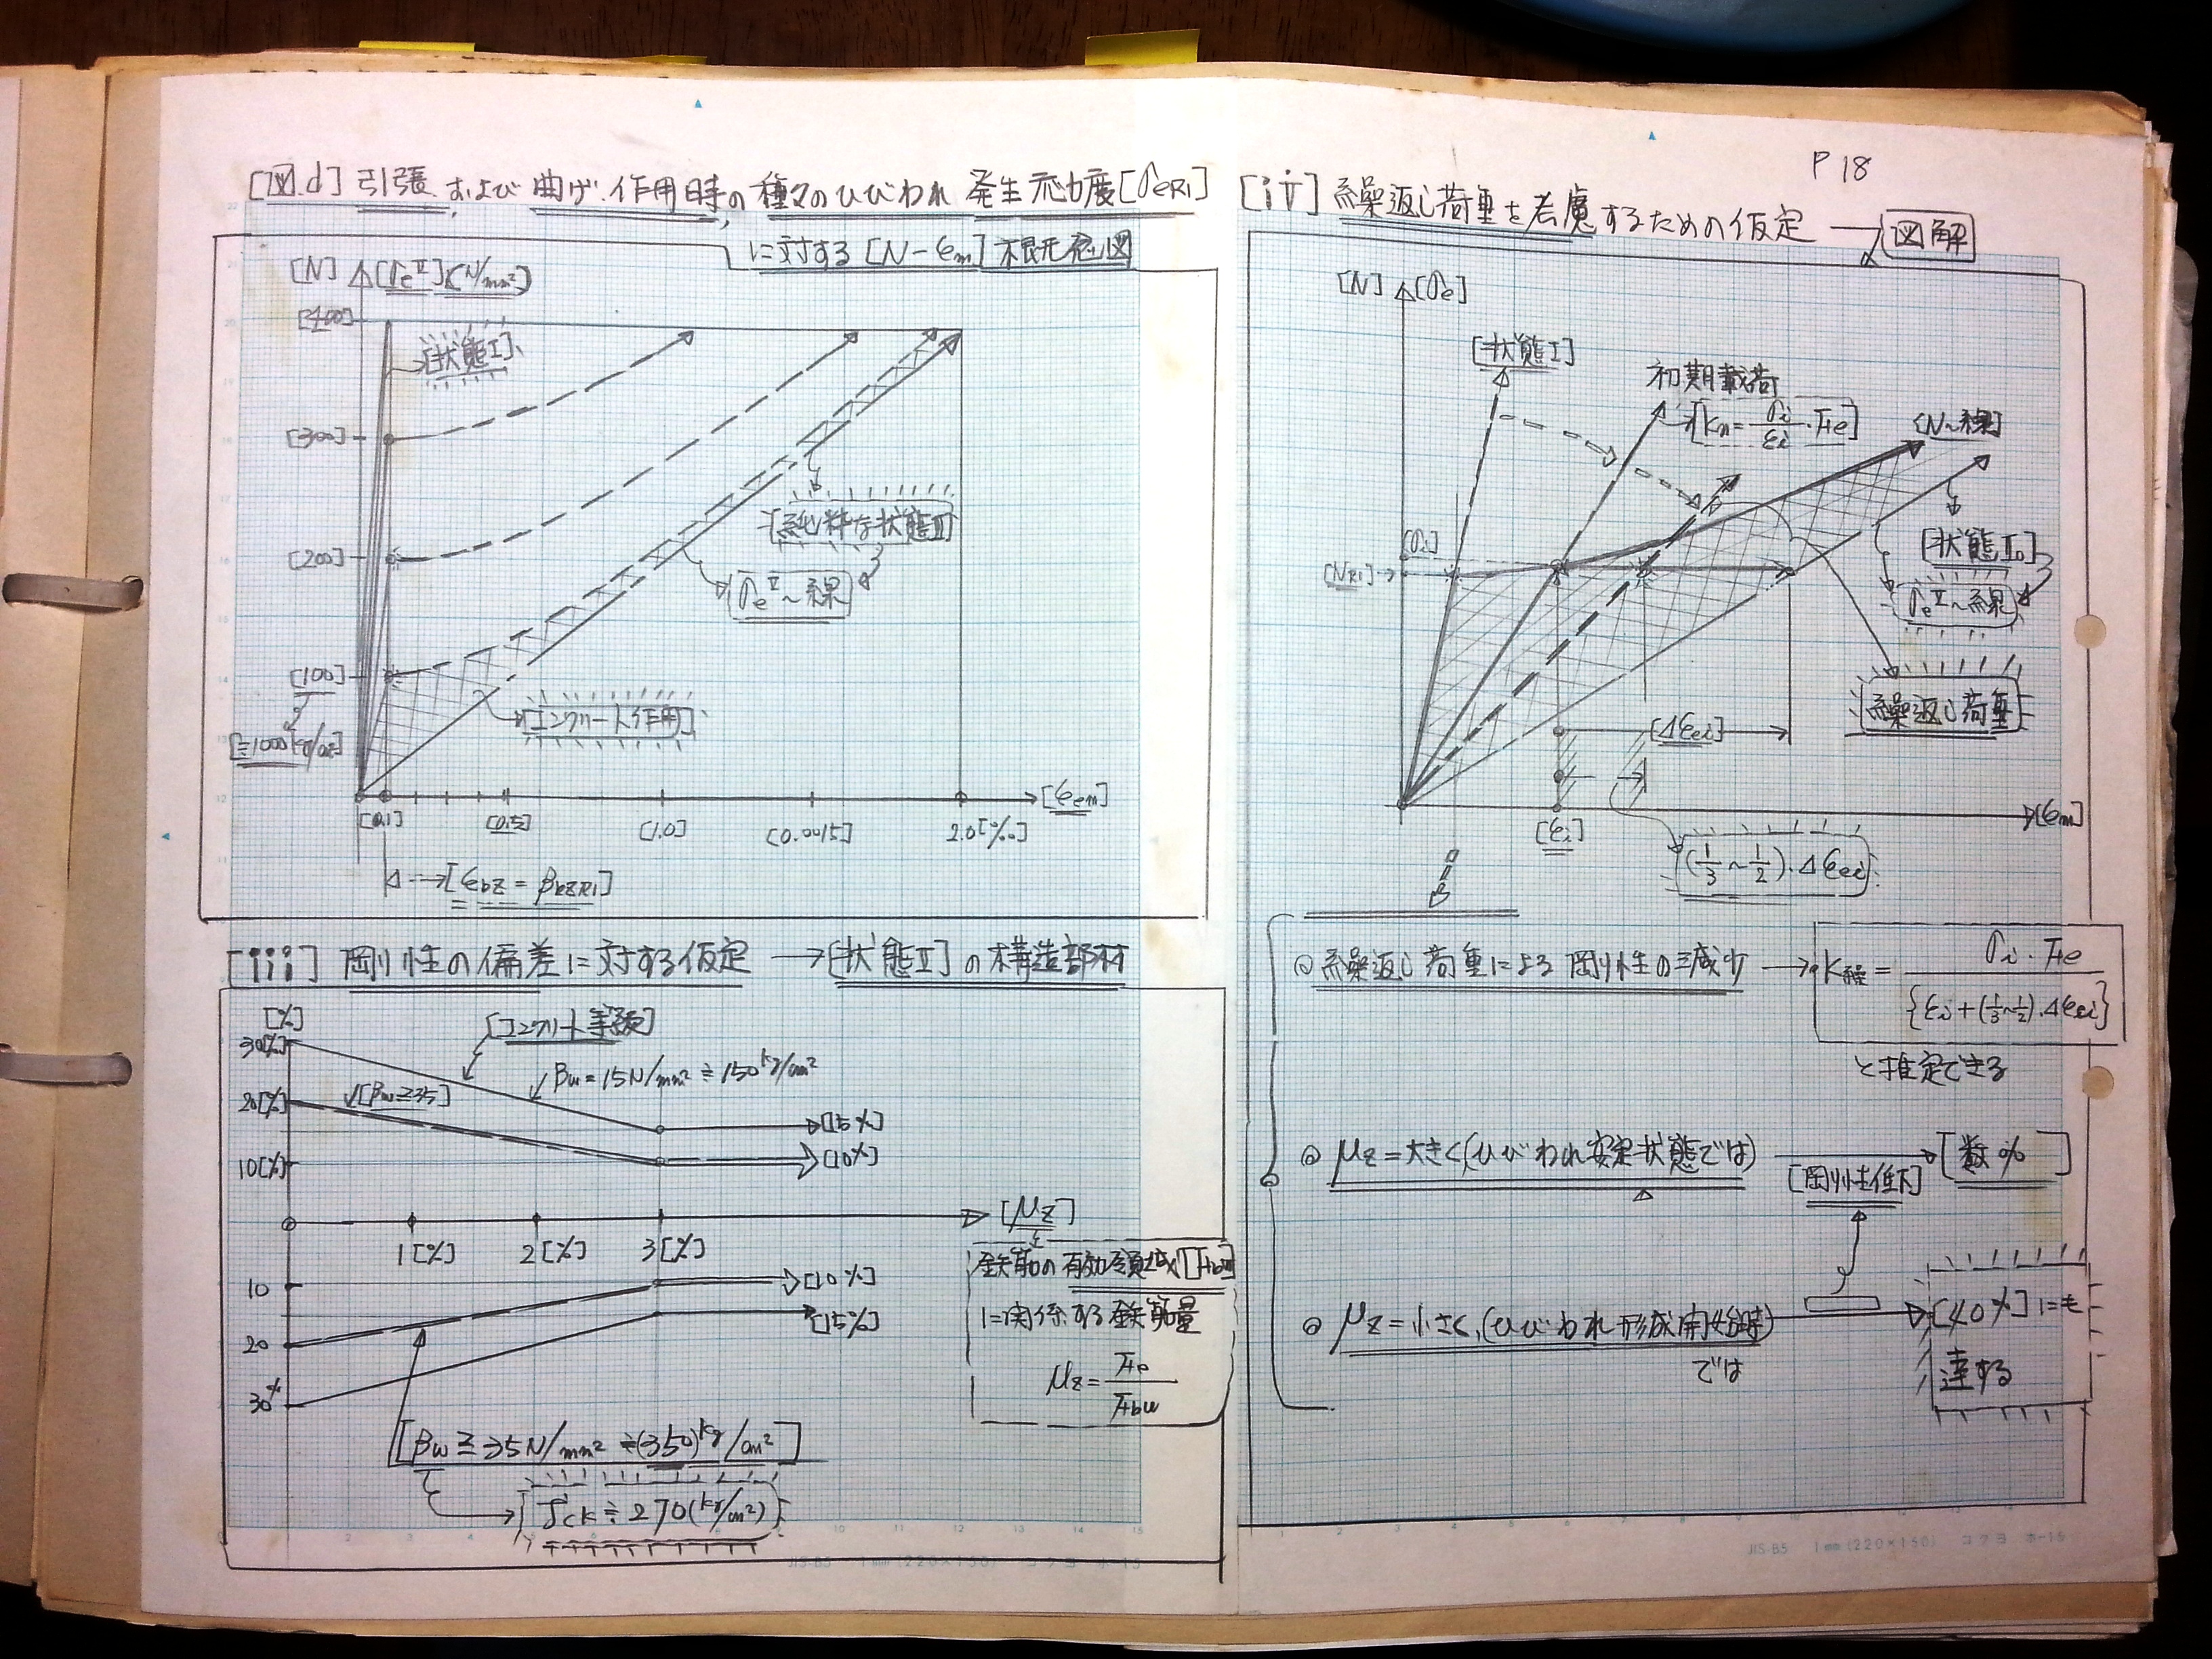 P 18
[図.d] 引張、および曲げ作用時の種々のひびわれ発生応力度[σeR1]
に対する[N-εm]概略図
[N] [σeⅡ](N/mm²)
[400]
[状態Ⅰ]
[300]
[200]
[純粋な状態Ⅱ]
[σeⅡ~線]
[100]
[≒1000kg/cm²]
[コンクリート作用]
[εem]
[0.1]
[0.5]
[1.0]
[0.0015]
2.0[‰]
[εbz = βbzR1]
[iii] 剛性の偏差に対する仮定 → [状態Ⅱ]の構造部材
[%]
[コンクリート等級]
30[%]
βw = 15N/mm² ≒ 150kg/cm²
20[%]
[βw≧35]
[15%]
10[%]
[10%]
[μz]
1[%]
2[%]
3[%]
鉄筋の有効領域[Fbw]
に関係する鉄筋量
μz = Fe/Fbw
10
[10%]
[15%]
20
30%
[βw ≧ 35N/mm² ≒ (350)kg/cm²]
σck ≒ 270(kg/cm²)
[iv] 繰返し荷重を考慮するための仮定 → 図解
[N] [σe]
[状態Ⅰ]
初期載荷
[Kn = σi/εi · Fe]
[N~線]
[σi]
[NR1]
[σeⅡ~線]
[繰返し荷重]
[Δεei]
[εi]
[εm]
(1/3~1/2)·Δεei
◎ 繰返し荷重による剛性の減少 → K繰 = σi·Fe/{εi+(1/3~1/2)·Δεei}
と推定できる
◎ μz = 大きく(ひびわれ安定状態では) → [数%]
[剛性低下]
◎ μz = 小さく、(ひびわれ形成開始時) → [40%]にも
では
達する
JIS-B5 1mm(220×150) コクヨ ホ-15
JIS-B5 1mm(220×150) コクヨ ホ-15